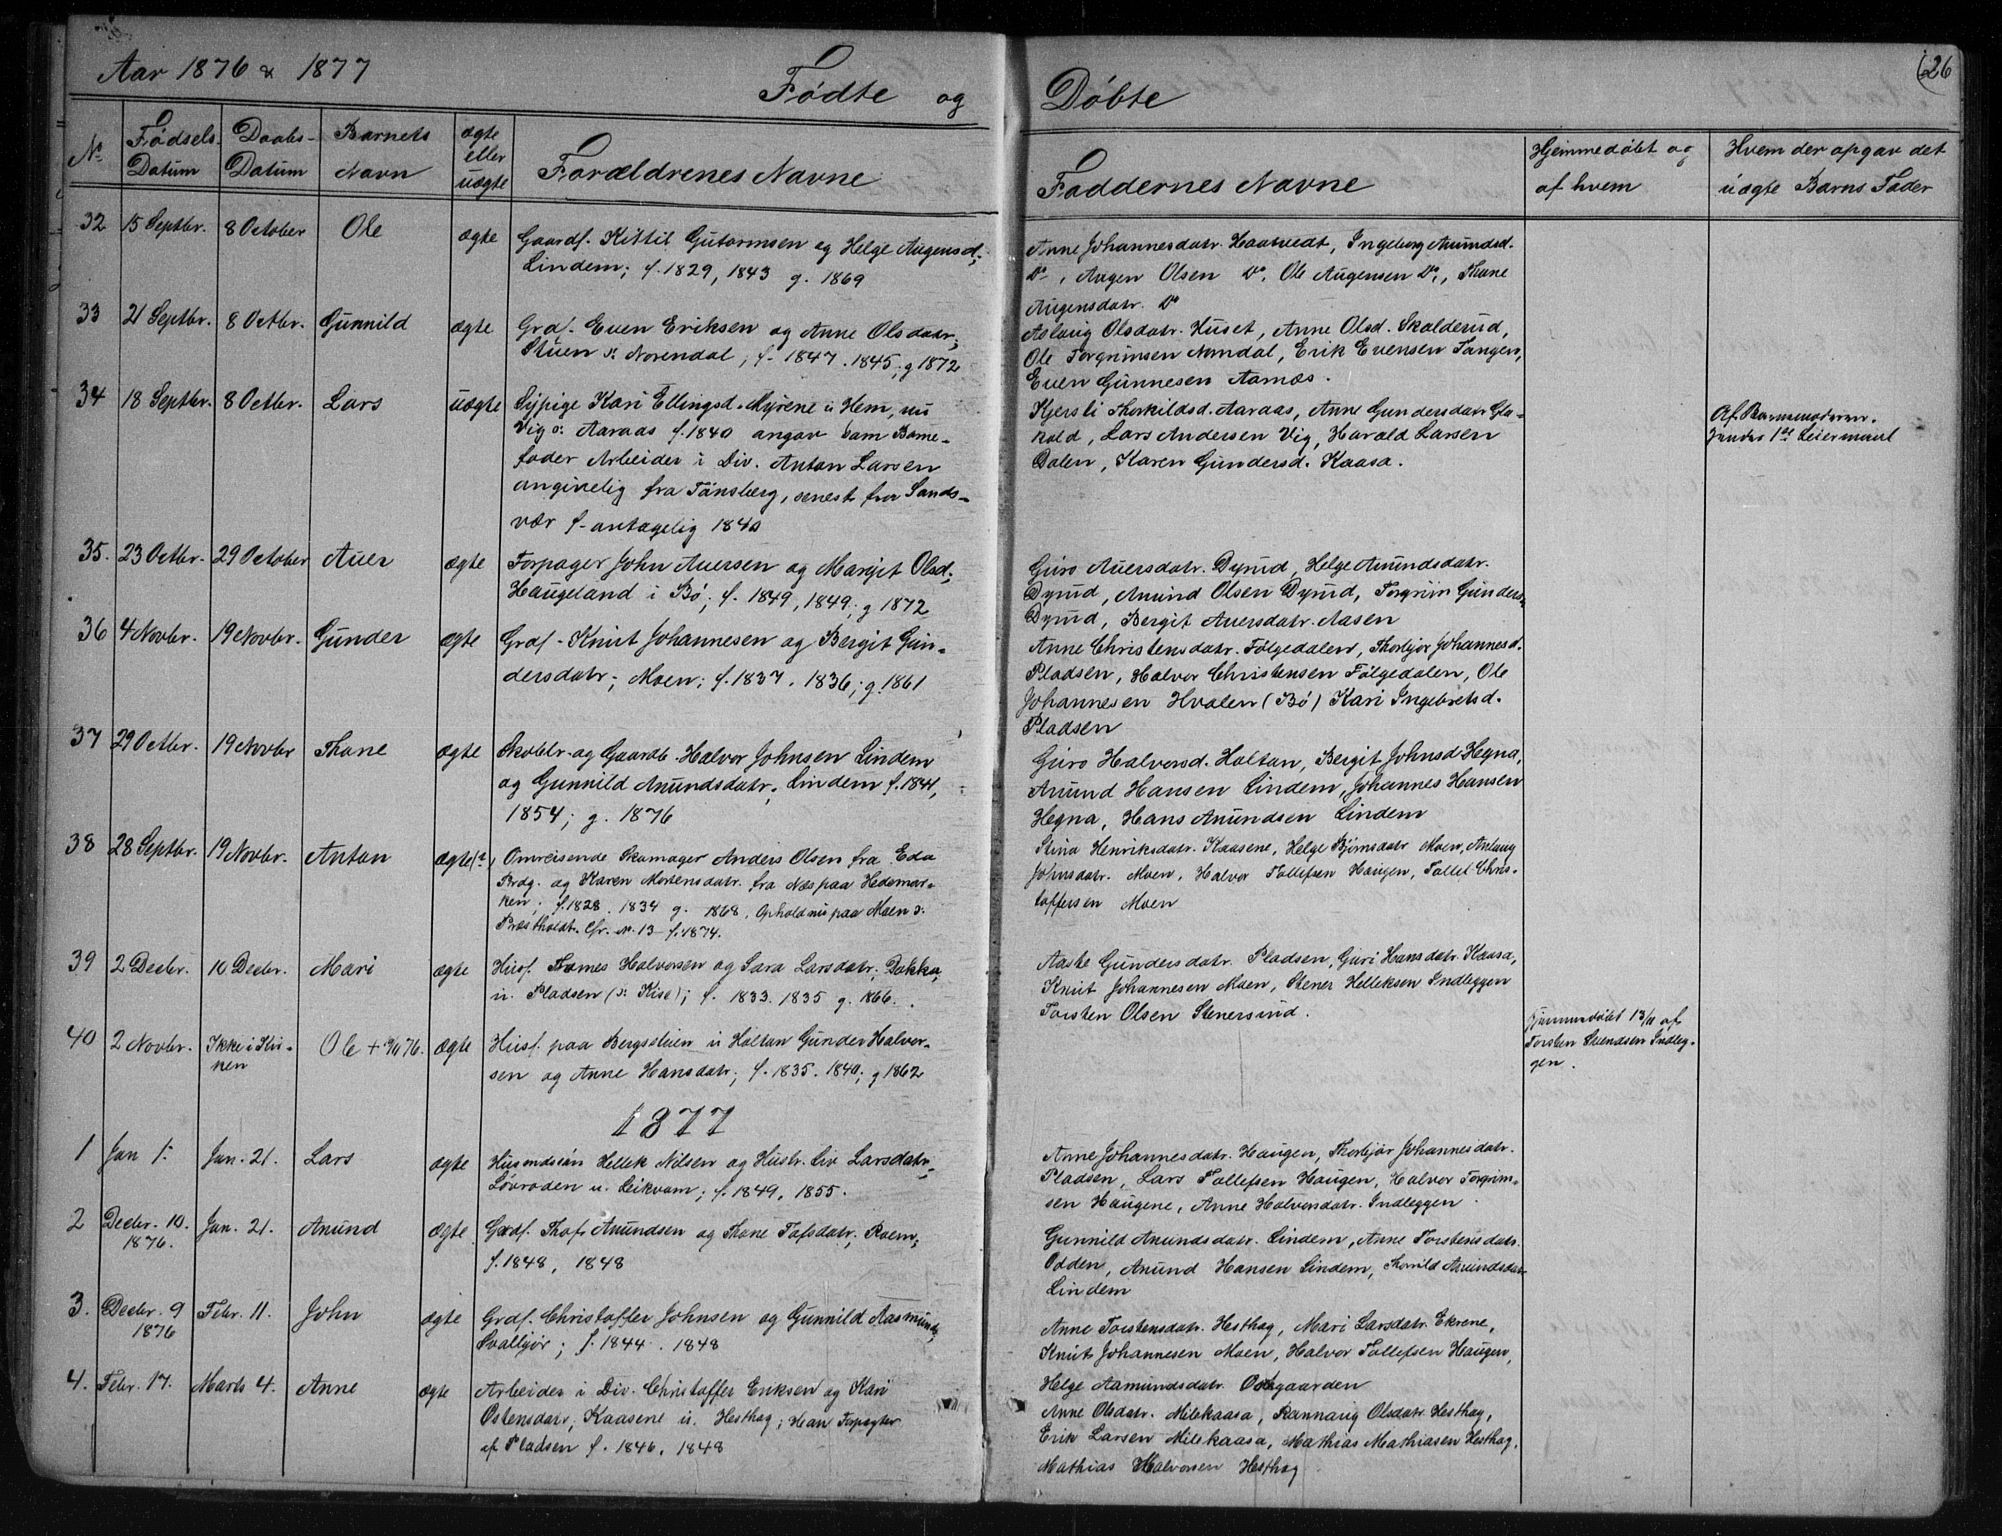 Aar 1876 & 1877
Fødte og Døbte
26
No
Fødsels Datum
Daabs-Datum
Barnets Navn
ægte eller uægte
Forældrenes Navne
Faddernes Navne
Hjemmedøbt og af hvem
Hvem der opgav det uægte Barns Fader
32 15 Septbr. 8 October Ole ægte Gaardf. Kittil Gutormsen og Helge Augensd.
Lindem; f. 1829, 1843 g. 1869
Anne Johannesdatr. Haatvedt, Ingeborg Anundsd.
Do, Augen Olsen Do, Ole Augensen Do, Thone
Augensdatr. Do
33 21 Septbr. 8 Octbr. Gunnild ægte Grdf. Even Eriksen og Anne Olsdatr.,
Stuen o: Norendal; f. 1847. 1845; g 1872
Aslaug Olsdatr. Huset, Anne Olsd. Skalderud,
Ole Torgrimsen Nomdal, Erik Evensen Tangen,
Even Gunnesen Aarnæs.
34 18 Septbr. 8 Octbr. Lars uægte Sypige Kari Ellingsd. Myrene u Hem, nu
Vig o: Aaraas f. 1840 angav som Barne-
fader Arbeider i Div. Anton Larsen
angivelig fra Tønsberg, senest fra Sands-
vær f. antagelig 1840
Kjersti Thorkildsd. Aaraas, Anne Gundersdatr Ho-
kald, Lars Andersen Vig, Harald Larsen
Dalen, Karen Gundersd. Kaasa.
Af Barnemoderen.
1ste Leiermaal
35. 23 Octbr. 29 October Auer ægte Forpagter John Auersen og Margit Olsd.,
Haugeland i Bø; f. 1849, 1849; g 1872
Guro Auersdatr. Dyrud, Helge Anundsdatr.
Dyrud, Anund Olsen Dyrud, Torgrim Gunders.
Dyrud, Bergit Auersdatr. Aasen
36 4 Novbr. 19 Novbr. Gunder ægte Grdf. Knut Johannesen og Bergit Gun-
dersdatr; Moen; f. 1837. 1836; g. 1861
Anne Christensdatr. Følgedalen, Thorbjør Johannesd.
Pladsen, Halvor Christensen Følgedalen, Ole
Johannesen Hvalen (Bø) Kari Ingebretsd.
Pladsen
37 29 Octbr. 19 Novbr Thone ægte Skoblr. og Gaardb. Halvor Johnsen Lindem
og Gunnild Anundsdatr. Lindem f. 1841,
1854; g. 1876
Guro Halvorsd. Holtan, Bergit Johnsd Hegna,
Anund Hansen Lindem, Johannes Hansen
Hegna, Hans Anundsen Lindem
38 28 Septbr. 19 Novbr. Anton ægte(?) Omreisende Skomager Anders Olsen fra Eda
Prdg. og Karen Mortensdatr. fra Næs paa Hedemar-
ken; f. 1828. 1834 g. 1868. Ophold nu paa Moen o:
Præstholdt. Cfr. N. 13 f. 1874.
Stina Henriksdatr. Kaasene, Helge Bjørnsdatr Moen, Anlaug
Johnsdatr. Moen, Halvor Tollefsen Haugen, Tollef Chris-
toffersen Moen
39 2 Decbr. 10 Decbr. Mari ægte Husf. Thomes Halvorsen og Sara Larsdatr. Dokka,
u. Pladsen (o: Kise); f. 1833. 1835 g. 1866.
Aaste Gundersdatr. Pladsen, Guri Hansdatr. Kaasa,
Knut Johannesen Moen, Stener Helleksen Indleggen
Torsten Olsen Stenersrud.
40 2 Novbr. Ikke i Kir-
ken Ole + 76. ægte Husf. paa Bergstuen u Holtan Gunder Halvor-
sen og Anne Hansdatr; f. 1835. 1840; g 1862
Hjemmedøbt 13/11 af
Torsten Svendsen Indleg-
gen.
1877
1 Jan 1. Jan. 21. Lars ægte Husmdssøn Hellek Nilsen og Hustr. Liv Larsdatr.,
Løvroden u. Leikvam; f. 1849, 1855.
Anne Johannesdatr. Haugen, Thorbjør Johannesdatr.
Pladsen, Lars Tollefsen Haugen, Halvor Torgrim-
sen Haugene, Anne Halvorsdatr. Indleggen.
2 Decbr. 10. 1876. Jan. 21. Anund ægte Grdf. Thof Anundsen og Thone Tofsdatr; Roem;
f. 1848, 1848
Gunnild Anundsdatr. Lindem, Anne Torstensdatr.
Odden, Anund Hansen Lindem, Thorild Anundsdatr
Lindem
3. Decbr. 9 1876 Febr. 11. John ægte Grdf. Christoffer Johnsen og Gunnild Aasmunds
Svalljør; f. 1844. 1848
Anne Torstensdatr. Hesthag, Mari Larsdatr. Ekrene,
Knut Johannesen Moen, Halvor Tollefsen Haugen,
Helge Aamundsdatr. Ostegaarden
4. Febr. 17. Marts 4. Anne ægte Arbeider i Div. Christoffer Eriksen og Kari
Ostensdatr, Kaasene u. Hesthag; Han Forpagter
af Pladsen f. 1846, 1848
Anne Olsdatr. Milekaasa, Rannaug Olsdatr. Hesthag,
Erik Larsen Milekaasa, Mathias Mathiasen Hesthag,
Mathias Halvorsen Hesthag